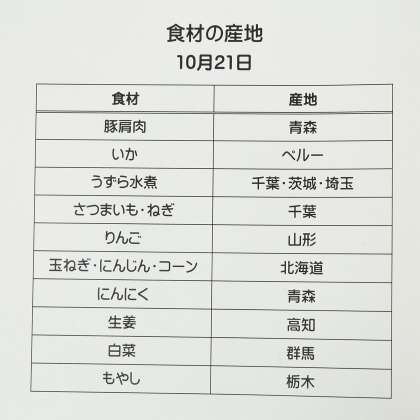 食材の産地
10月21日
食材 産地
豚肩肉 青森
いか ペルー
うずら水煮 千葉・茨城・埼玉
さつまいも・ねぎ 千葉
りんご 山形
玉ねぎ・にんじん・コーン 北海道
にんにく 青森
生姜 高知
白菜 群馬
もやし 栃木